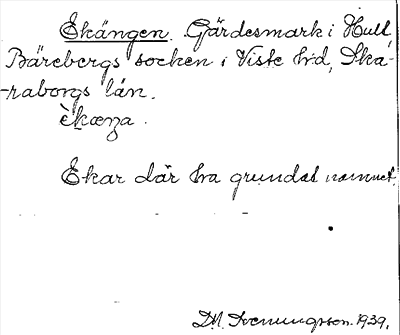 Ekängen. Gärdesmark i Hull
Bärebergs socken i Viste hrd, Ska-
-raborgs län.
èkæŋa.
Ekar där ha grundat namnet.
D.M. Svenungsson. 1939.